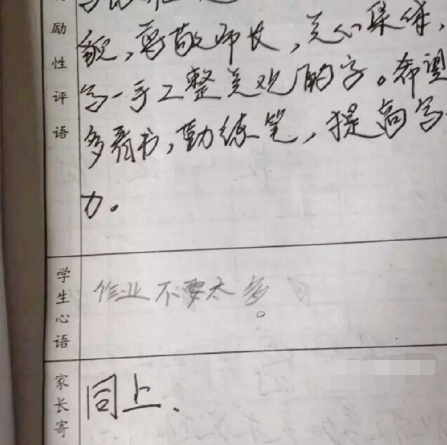 励性评语
貌，尊敬师长，关心集体，
写一手工整美观的字。希望
多看书，勤练笔，提高写
力。
学生心语
作业不要太多。
家长寄
同上.